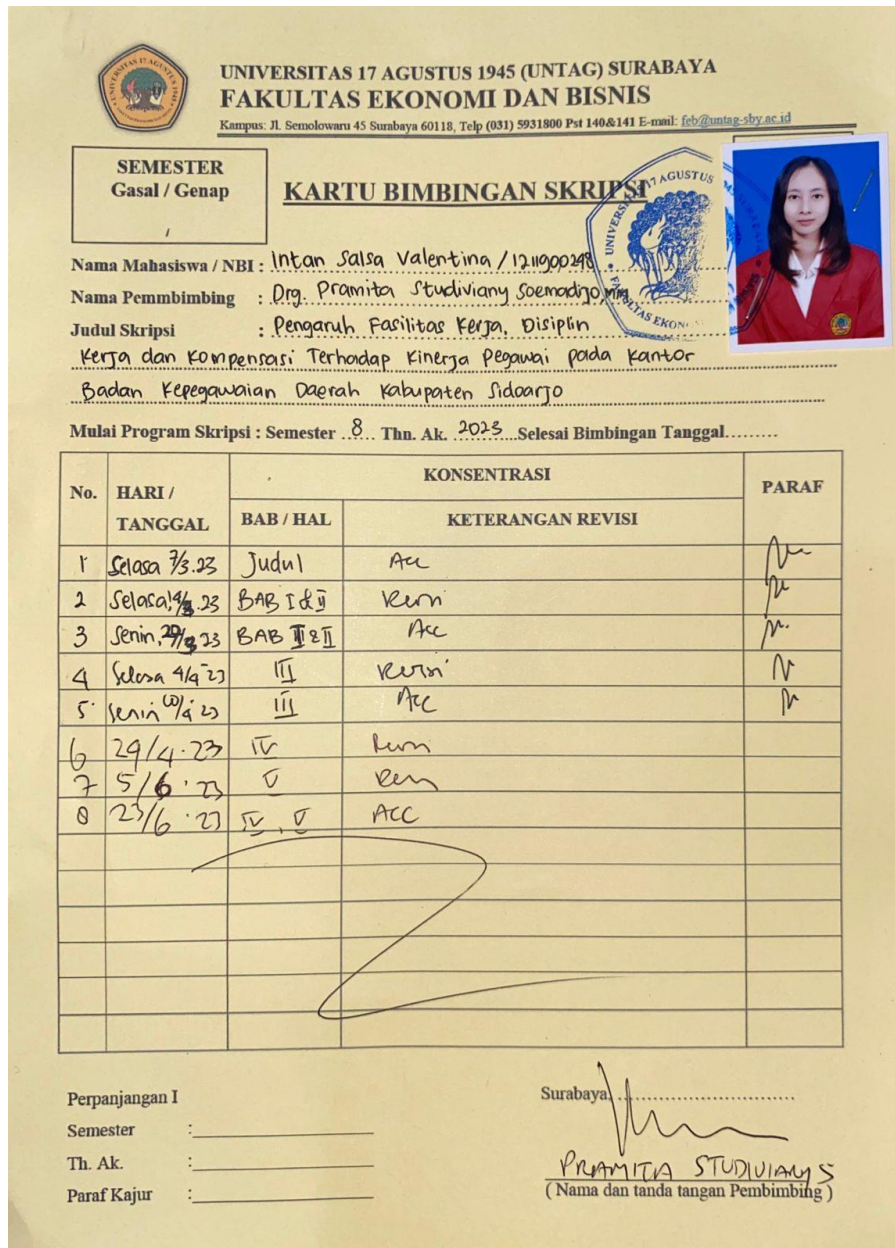 UNIVERSITAS 17 AGUSTUS 1945 (UNTAG) SURABAYA
FAKULTAS EKONOMI DAN BISNIS
Kampus: Jl. Semolowaru 45 Surabaya 60118, Telp (031) 5931800 Pst 140&141 E-mail: feb@untag-sby.ac.id
SEMESTER
Gasal / Genap
/
KARTU BIMBINGAN SKRIPSI
Nama Mahasiswa / NBI : Intan Salsa Valentina / 1211900248
Nama Pemmbimbing : Drg. Pramita Studiviany Soemadijo, MM
Judul Skripsi : Pengaruh Fasilitas Kerja, Disiplin
Kerja dan Kompensasi Terhadap Kinerja Pegawai pada Kantor
Badan Kepegawaian Daerah Kabupaten Sidoarjo
Mulai Program Skripsi : Semester 8 Thn. Ak. 2023 Selesai Bimbingan Tanggal.........
No. HARI / TANGGAL KONSENTRASI PARAF
BAB / HAL KETERANGAN REVISI
1 Selasa 7/3.23 Judul Acc
2 Selasa, 14/3.23 BAB I & II Revisi
3 Senin, 23 BAB I & II Acc
4 Selasa 4/4 23 III Revisi
5 Senin 10/4 23 III Acc
6 29/4.23 IV Revisi
7 5/6.23 V Revisi
8 23/6.23 IV, V ACC
Perpanjangan I
Semester :
Th. Ak. :
Paraf Kajur :
Surabaya,
PRAMITA STUDIVIANY S
( Nama dan tanda tangan Pembimbing )